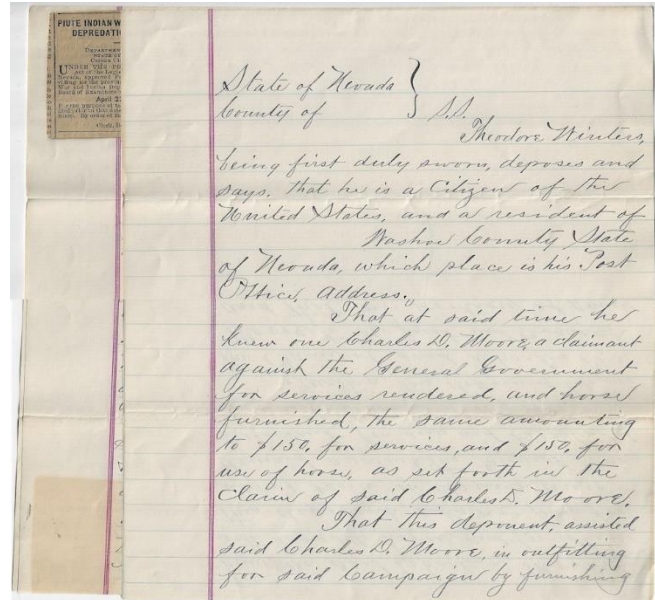 PIUTE INDIAN W
DEPREDATI
DEPARTMEN
STATE OF
UNDER THE PR
Act of the Legis
Nevada, approved
War and Indian Dep
Board of Examiners
April 2
State of Nevada
County of } S.S.
Theodore Winters,
being first duly sworn, deposes and
says, that he is a Citizen of the
United States, and a resident of
Washoe County State
of Nevada, which place is his Post
Office, address.
That at said time he
knew one Charles D. Moore, a claimant
against the General Government
for services rendered, and horse
furnished, the same amounting
to $150, for services, and $150, for
use of horse, as set forth in the
Claim of said Charles D. Moore.
That this deponent, assisted
said Charles D. Moore, in outfitting
for said Campaign by furnishing